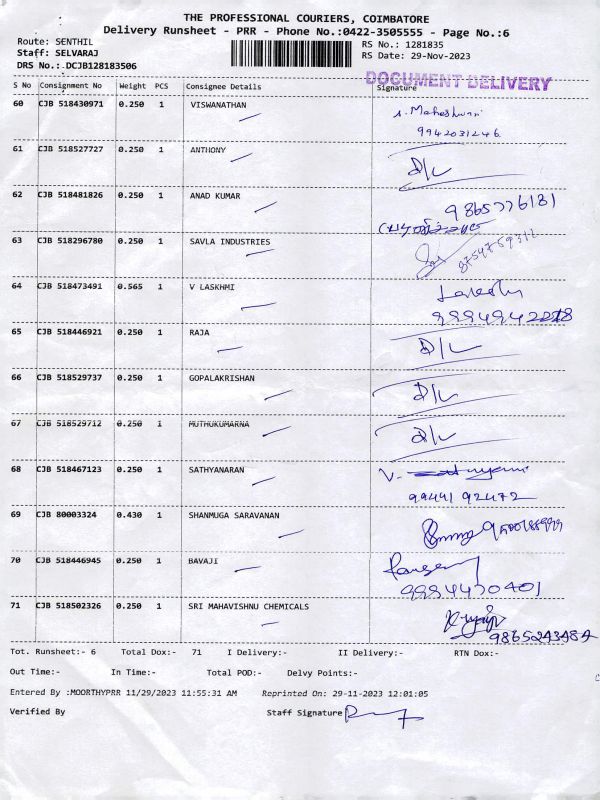 THE PROFESSIONAL COURIERS, COIMBATORE
Delivery Runsheet - PRR - Phone No.:0422-3505555 - Page No.:6
Route: SENTHIL
Staff: SELVARAJ
DRS No.: DCJB128183506
RS No.: 1281835
RS Date: 29-Nov-2023
DOCUMENT DELIVERY
S No Consignment No Weight PCS Consignee Details Signature
60 CJB 518430971 0.250 1 VISWANATHAN
s. Maheshwari
9942031246
61 CJB 518527727 0.250 1 ANTHONY D/L
62 CJB 518481826 0.250 1 ANAD KUMAR 9865776181
63 CJB 518296780 0.250 1 SAVLA INDUSTRIES
64 CJB 518473491 0.565 1 V LASKHMI
65 CJB 518446921 0.250 1 RAJA D/L
66 CJB 518529737 0.250 1 GOPALAKRISHAN D/L
67 CJB 518529712 0.250 1 MUTHUKUMARNA D/L
68 CJB 518467123 0.250 1 SATHYANARAN
99441 92472
69 CJB 80003324 0.430 1 SHANMUGA SARAVANAN
70 CJB 518446945 0.250 1 BAVAJI
9994470401
71 CJB 518502326 0.250 1 SRI MAHAVISHNU CHEMICALS
Tot. Runsheet:- 6 Total Dox:- 71 I Delivery:- II Delivery:- RTN Dox:-
Out Time:- In Time:- Total POD:- Delvy Points:-
Entered By :MOORTHYPRR 11/29/2023 11:55:31 AM Reprinted On: 29-11-2023 12:01:05
Verified By Staff Signature